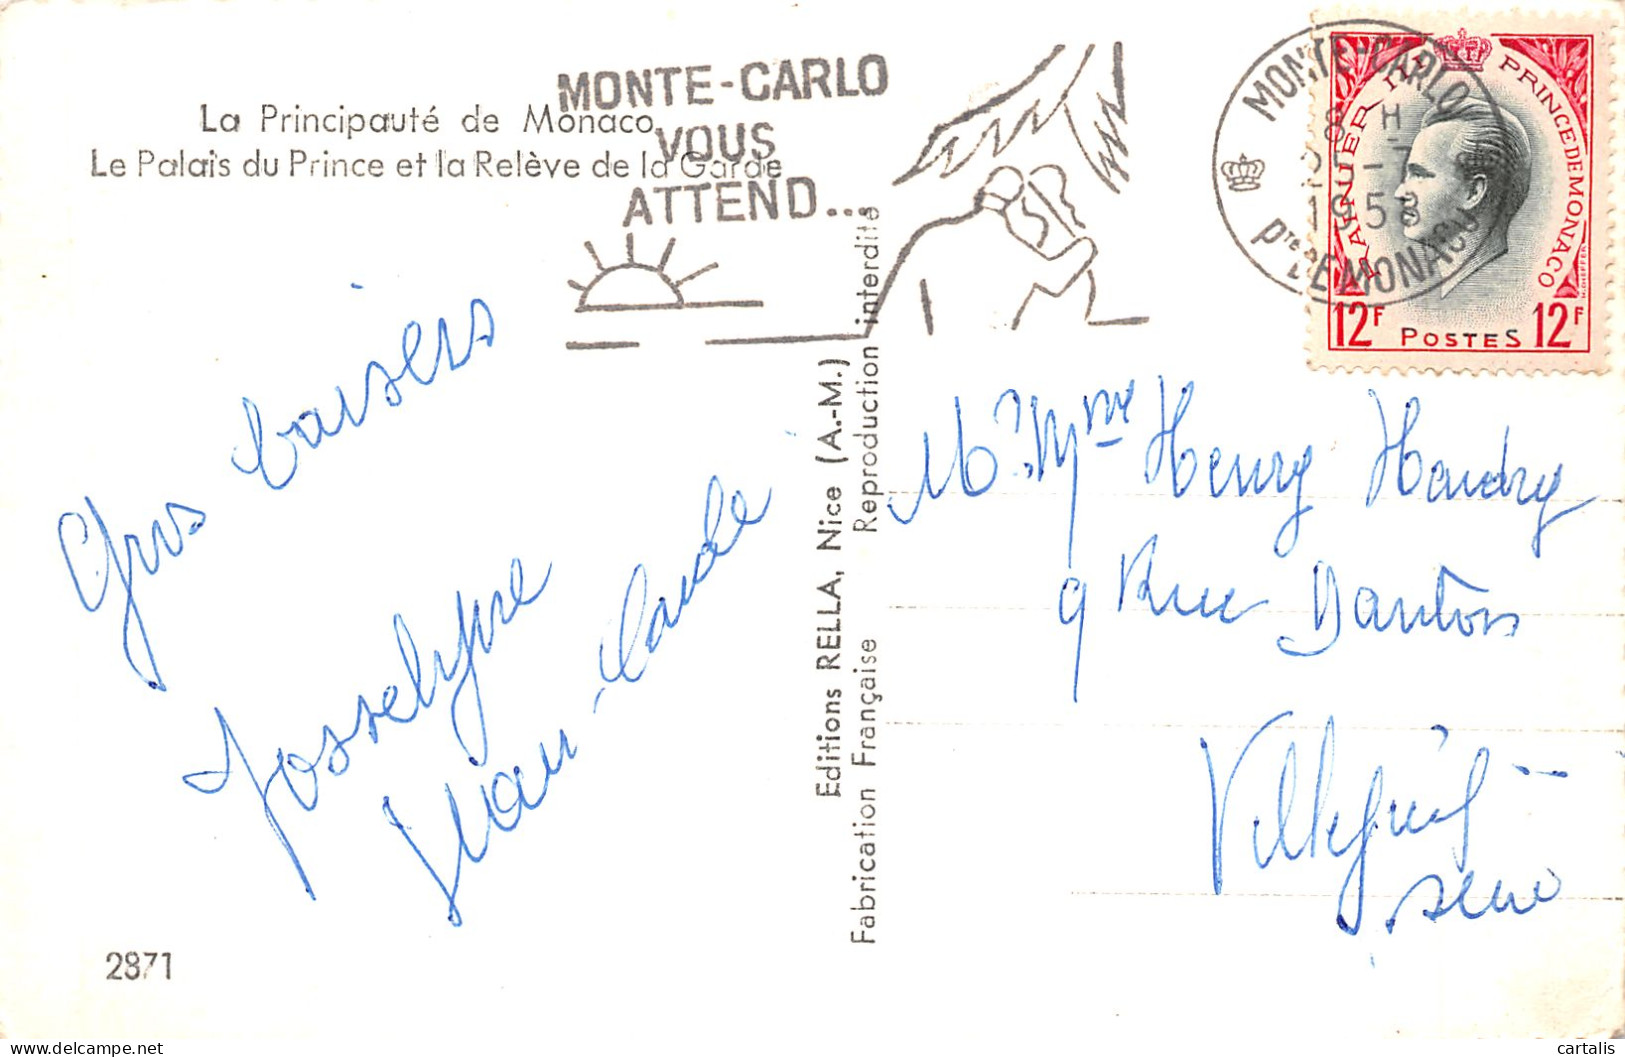 La Principauté de Monaco
Le Palais du Prince et la Relève de la Garde
MONTE-CARLO
VOUS
ATTEND...
MONTE-CARLO
8 H
25-7
1958
Pté DE MONACO
RAINIER III PRINCE DE MONACO
12F POSTES 12F
Gros baisers
Josselyne
Jean-Claude
Editions RELLA, Nice (A.-M.)
Fabrication Française Reproduction interdite
M. Mme Henry Haudry
9 Rue Danton
Villejuif
Seine
2871
cartalis